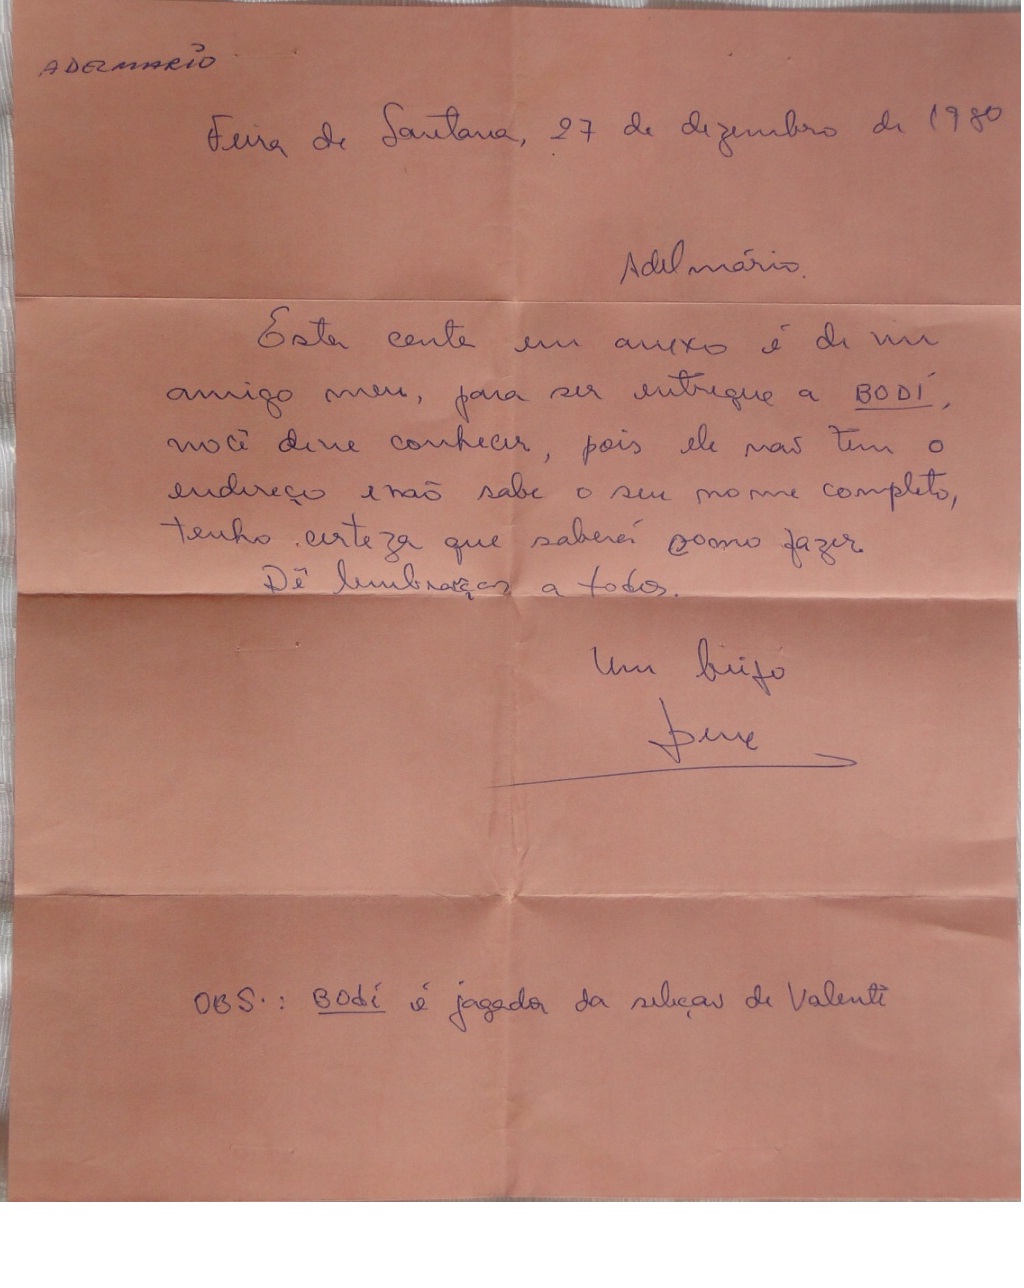 ADELMARIO
Feira de Santana, 27 de dezembro de 1980
Adelmário.
Esta carta em anexo é de um
amigo meu, para ser entregue a BODÍ,
você deve conhecer, pois ele não tem o
endereço e não sabe o seu nome completo,
tenho certeza que saberá como fazer.
Dê lembranças a todos.
Um beijo
OBS.: BODÍ é jogador da seleção de Valente